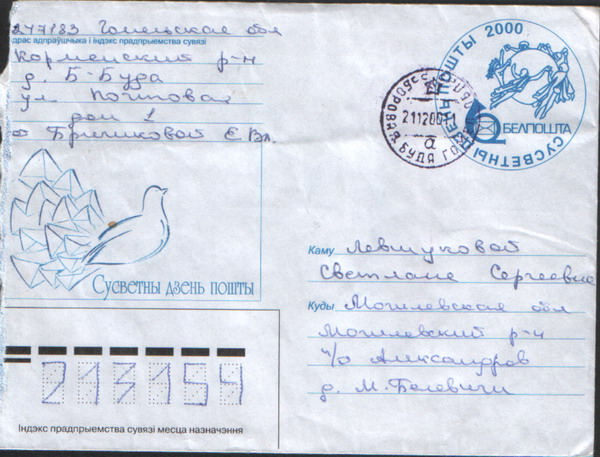 247183 Гомельская обл
драс адпраўшчыка і індэкс прадпрыемства сувязі
Кормянский р-н
д. Б-Буда
ул Почтовая
дом 1
Бричиковой Е. Вл.
СУСВЕТНЫ ДЗЕНЬ ПОШТЫ 2000
БЕЛПОШТА
БОРОВАЯ БУДА ГОМ
211200
а
Сусветны дзень пошты
Каму Левшуковой
Светлане Сергеевне
Куды Могилевская обл
Могилевский р-н
п/о Александров
д. М. Белевичи
213154
Індэкс прадпрыемства сувязі месца назначэння